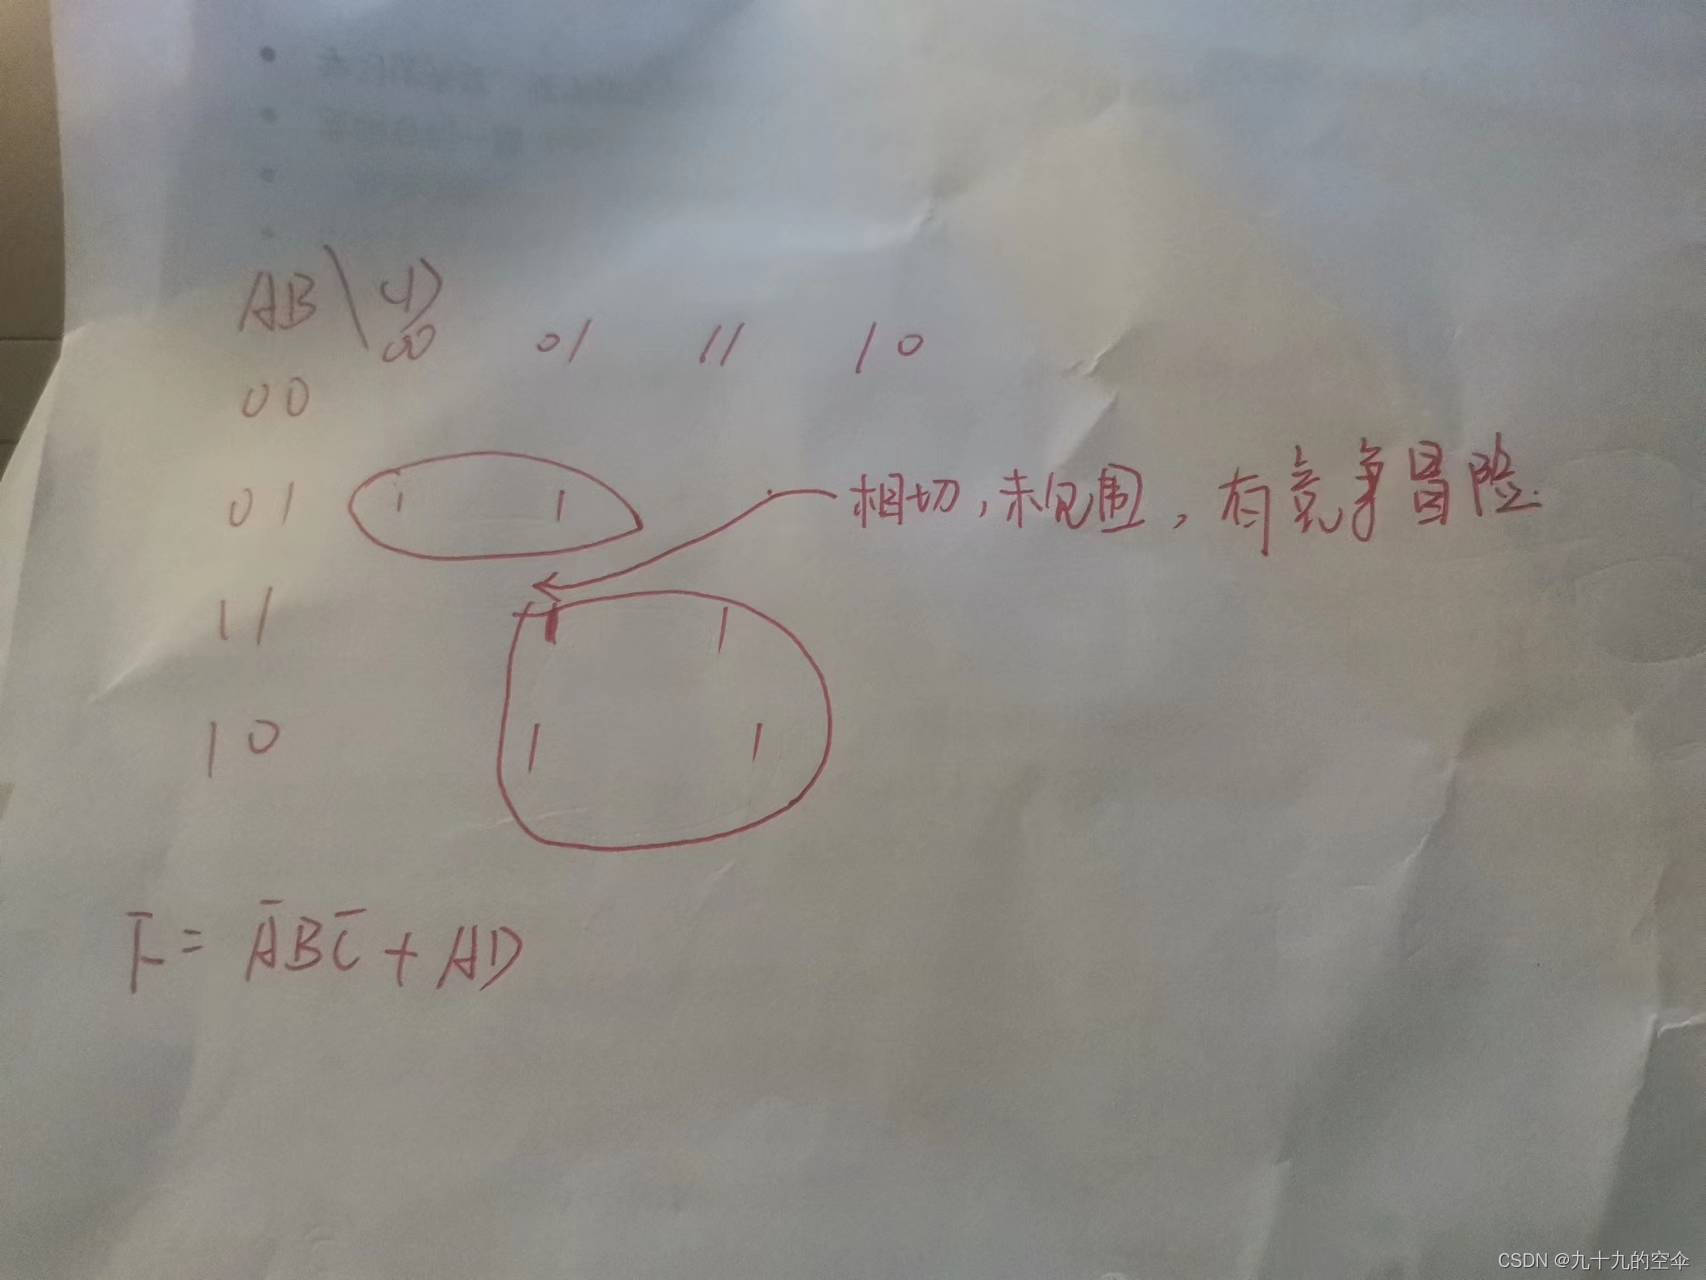 AB\CD
00 01 11 10
00
01 1 1
11 1 1
10 1 1
相切,未包围,有竞争冒险.
F = A̅BC̅ + AD
CSDN @九十九的空伞